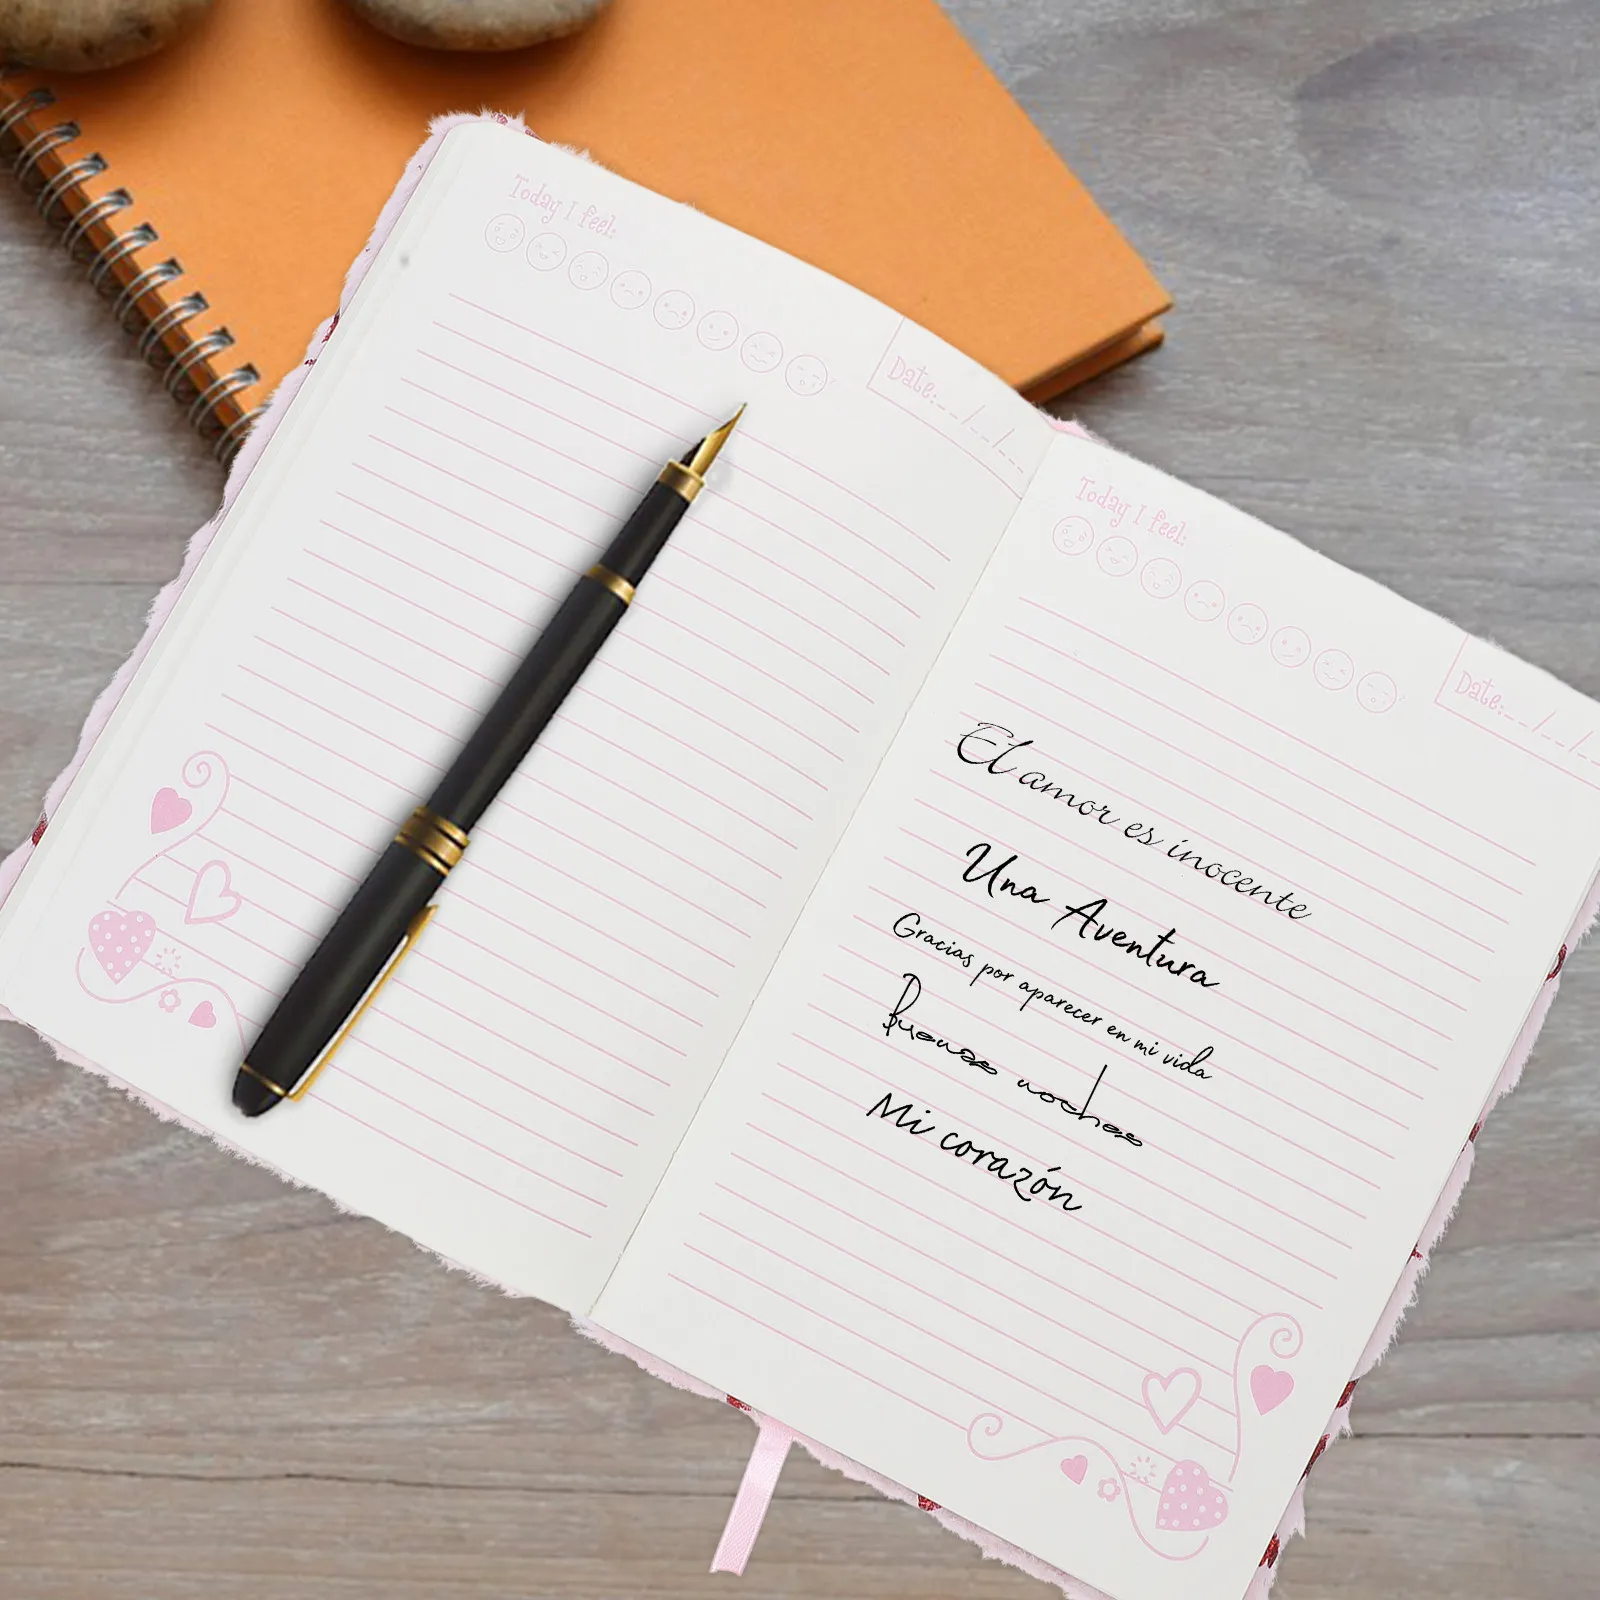 Today I feel:
Date:__/__/__
Today I feel:
Date:__/__/__
El amor es inocente
Una Aventura
Gracias por aparecer en mi vida
Buenas noches
Mi corazón